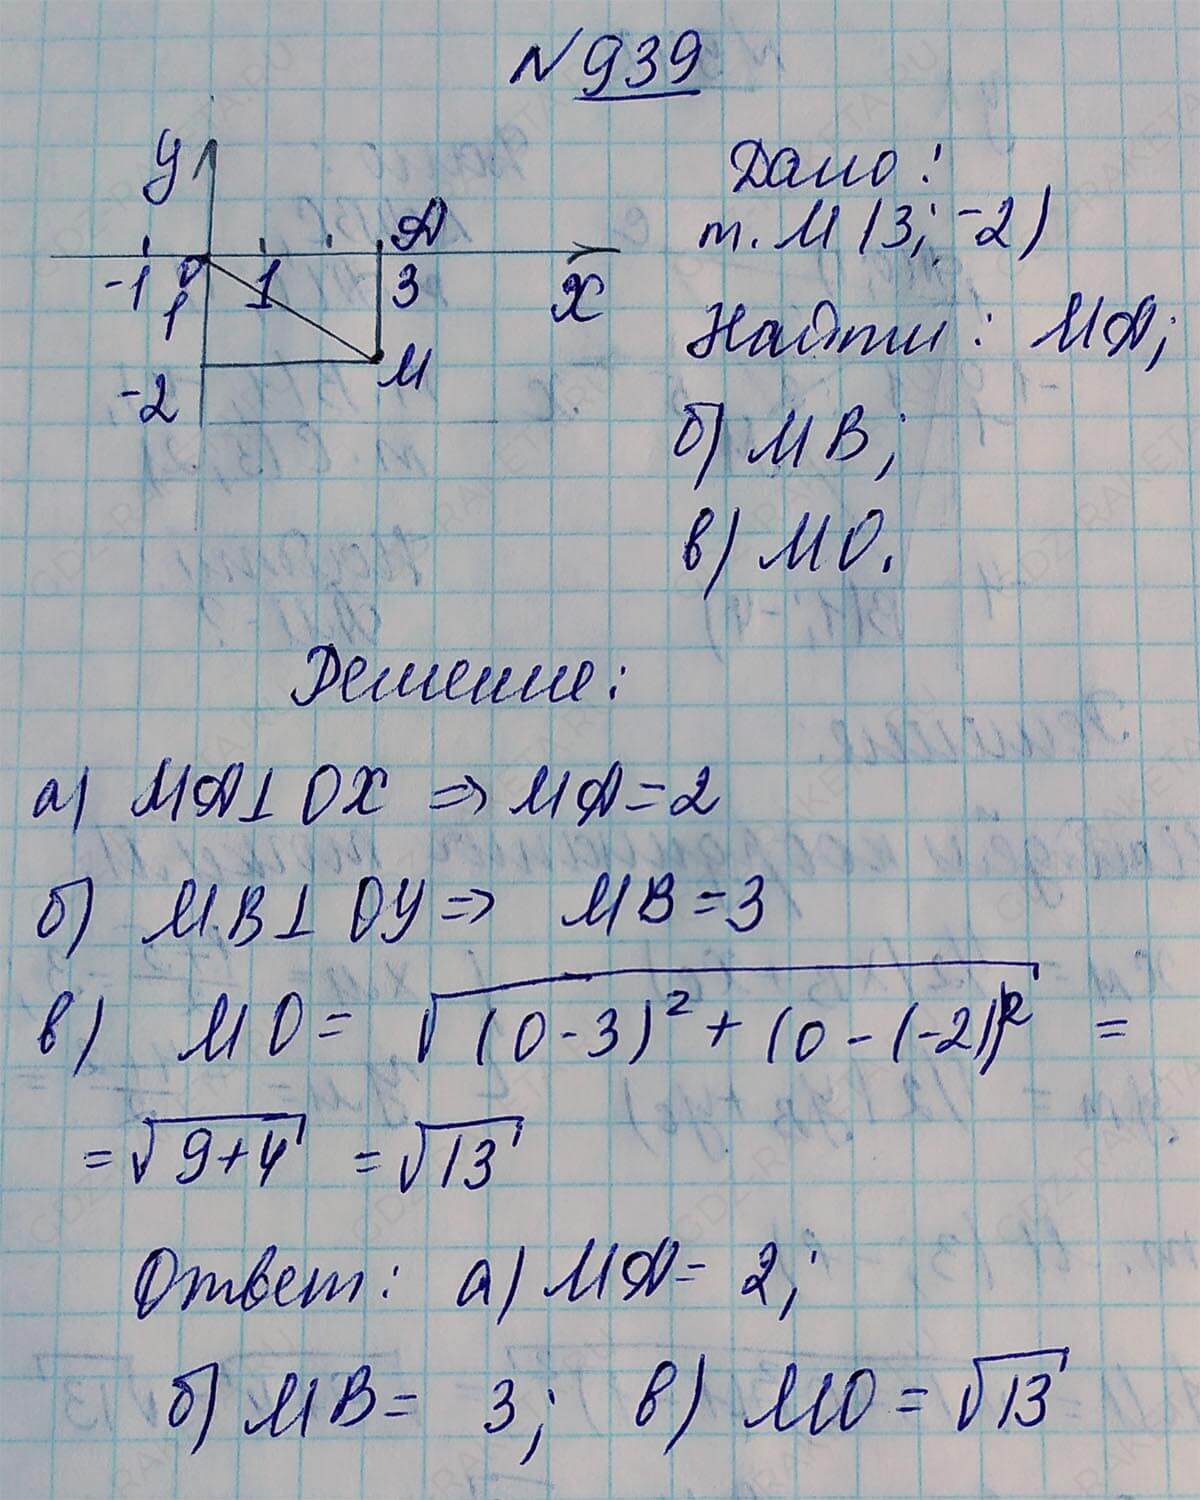 N 939
y
A
-1 0 1 3 x
1
-2
M
Дано:
т. M (3; -2)
Найти: MA;
б) MB;
в) MO.
Решение:
а) MA ⊥ OX ⇒ MA = 2
б) MB ⊥ OY ⇒ MB = 3
в) MO = √((0-3)² + (0-(-2))² =
= √(9+4) = √13
Ответ: а) MA = 2;
б) MB = 3; в) MO = √13